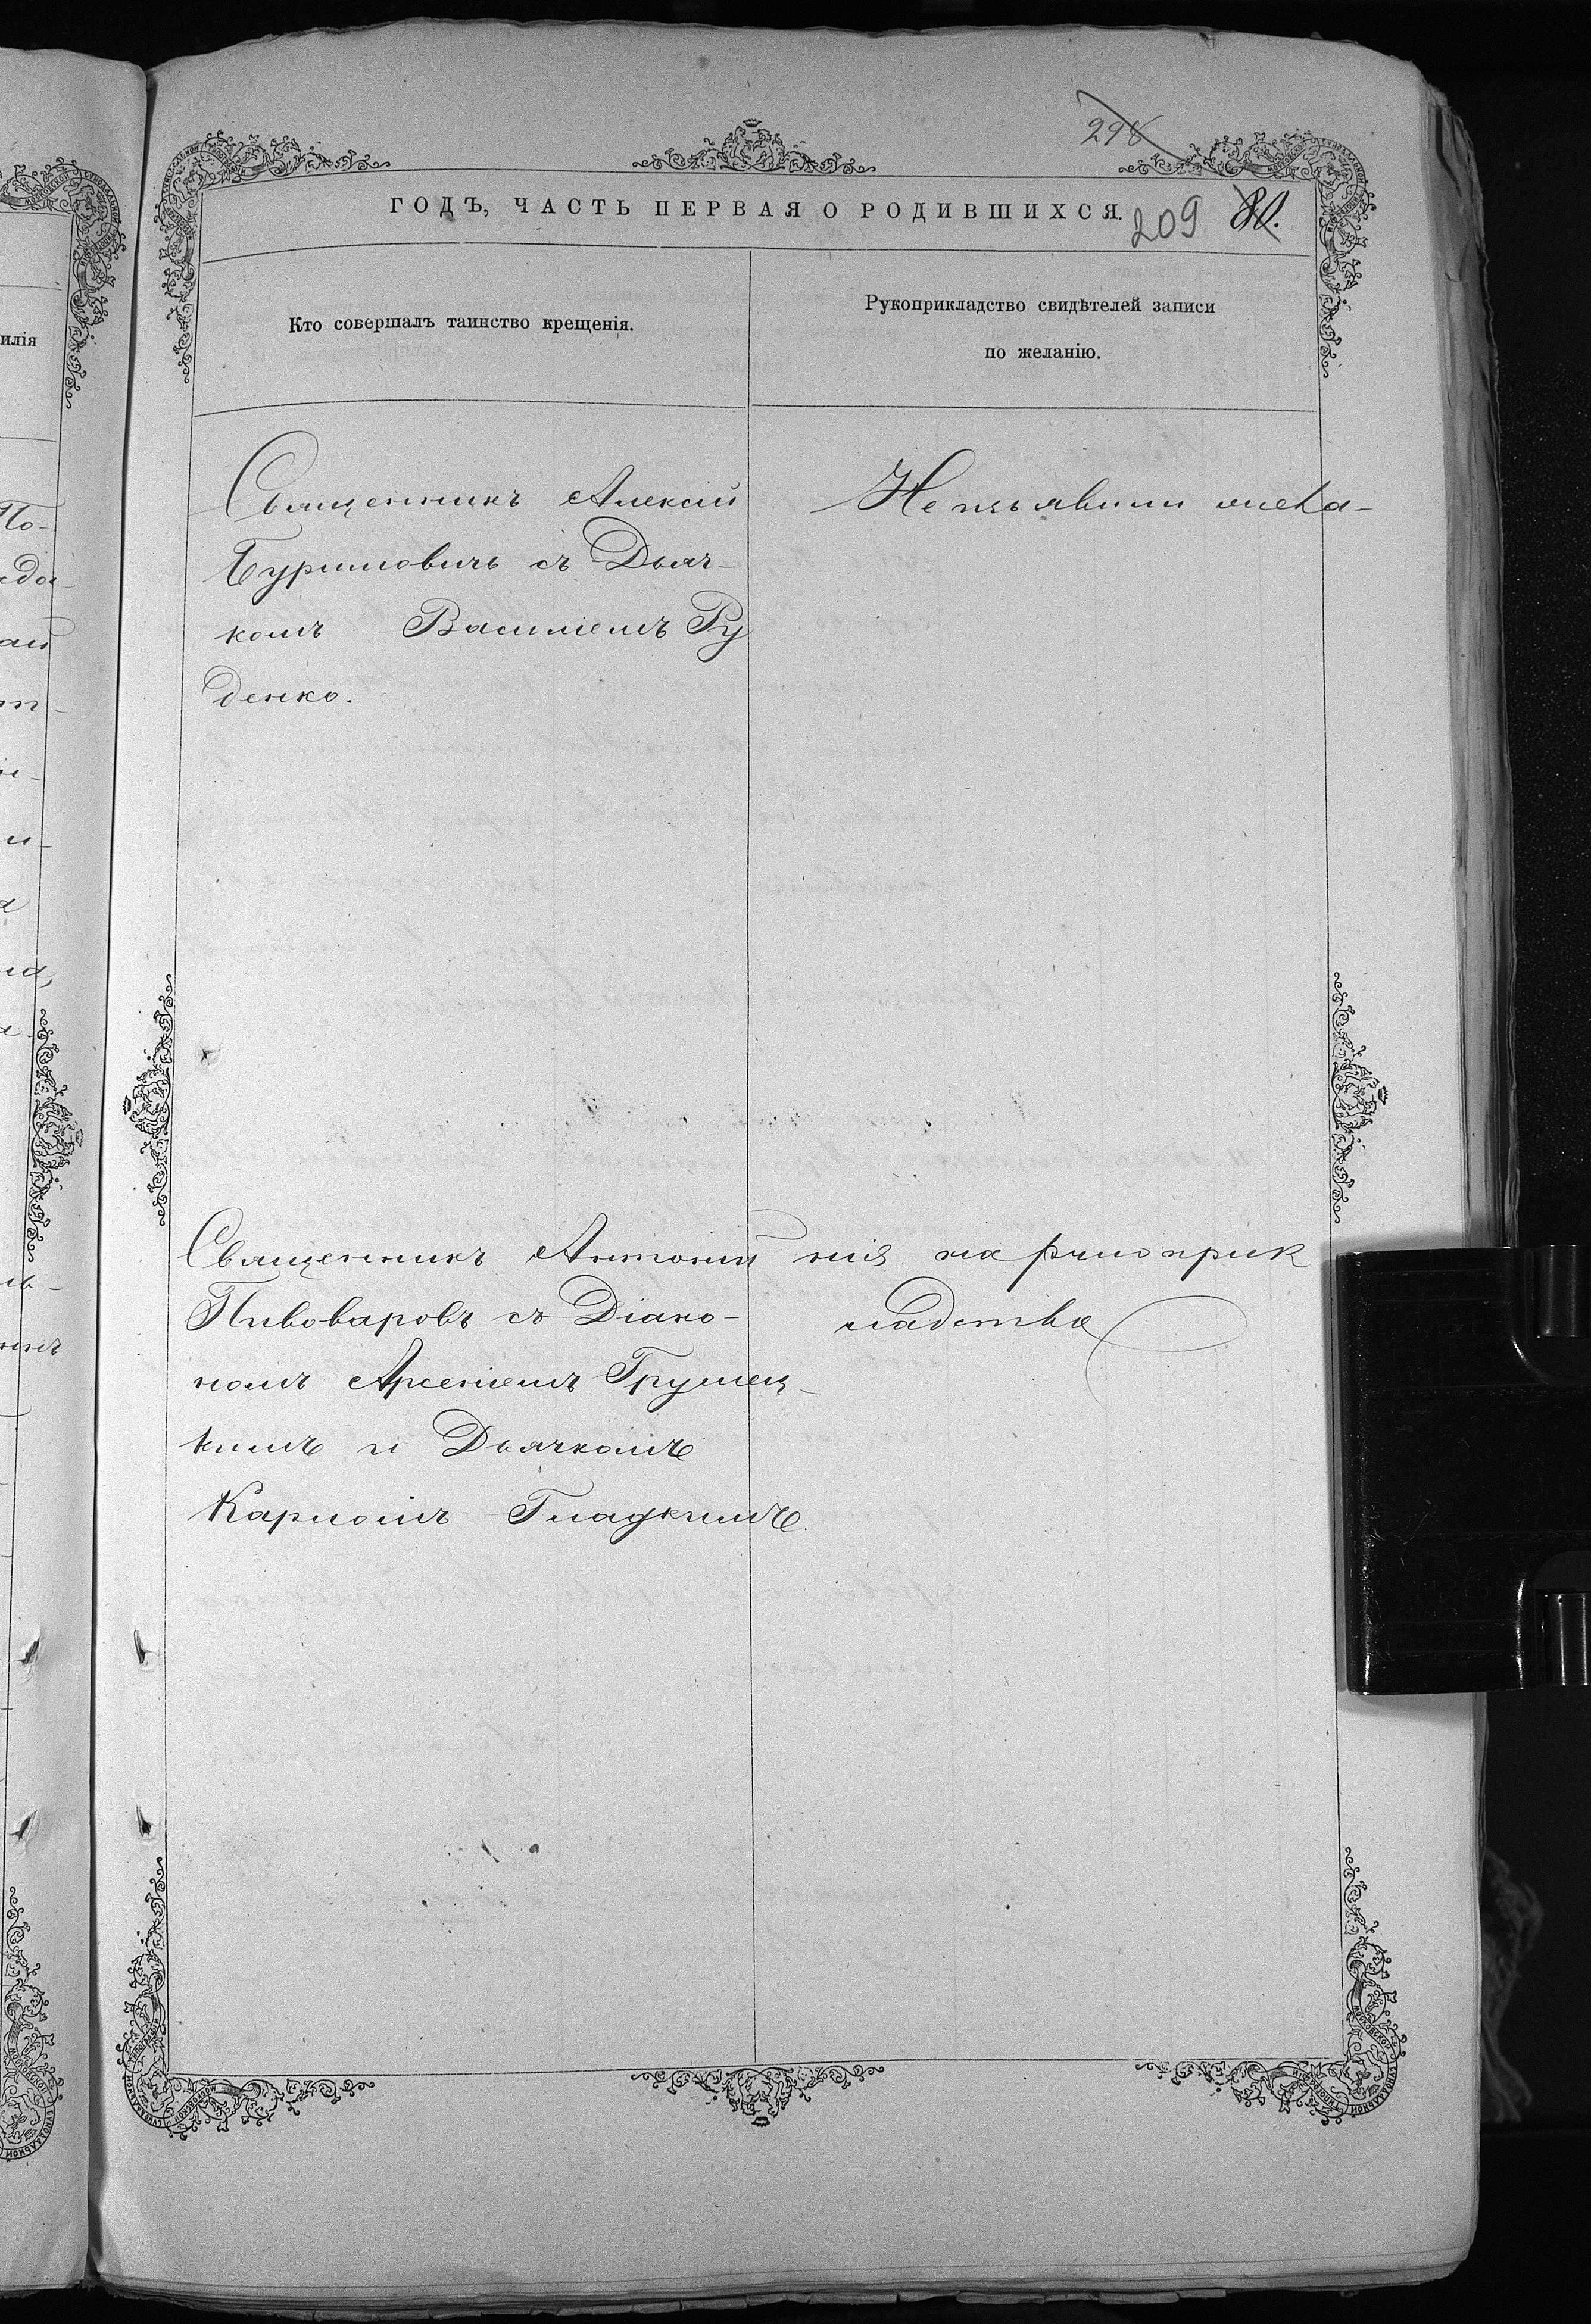 298
ГОДЪ, ЧАСТЬ ПЕРВАЯ О РОДИВШИХСЯ.
209
Кто совершалъ таинство крещенія.
Рукоприкладство свидѣтелей записи
по желанію.
Священникъ Алексій
Буримовичъ съ Дьяч-
комъ Василіемъ Ру
денко.
Не изъявили жела-
Священникъ Антоній
Пивоваровъ съ Діако-
номъ Арсеніемъ Грушец-
кимъ и Дьячкомъ
Карпомъ Гладкимъ.
нія на рукоприк
ладства
илія